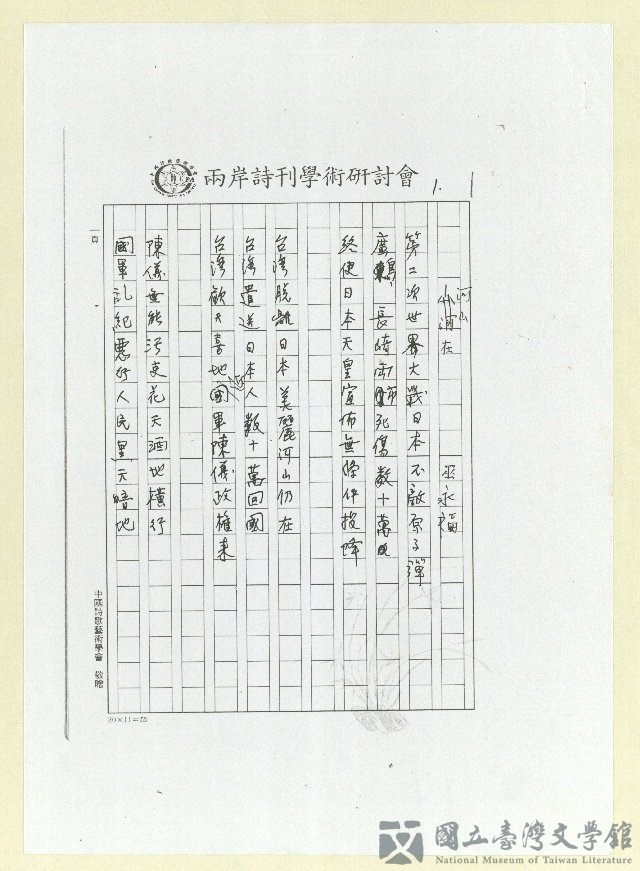 兩岸詩刊學術研討會
1.
河山
小酒在
巫永福
第二次世界大戰日本不敵原子彈
廣島、長崎兩市死傷數十萬
終使日本天皇宣佈無條件投降
台灣脫離日本美麗河山仍在
台灣遣送日本人數十萬回國
台灣歡天喜地迎國軍陳儀政權來
陳儀無能污吏花天酒地橫行
國軍乱紀惡行人民黑天暗地
頁
中國詩歌藝術學會 敬贈
20×11=
國立臺灣文學館
National Museum of Taiwan Literature